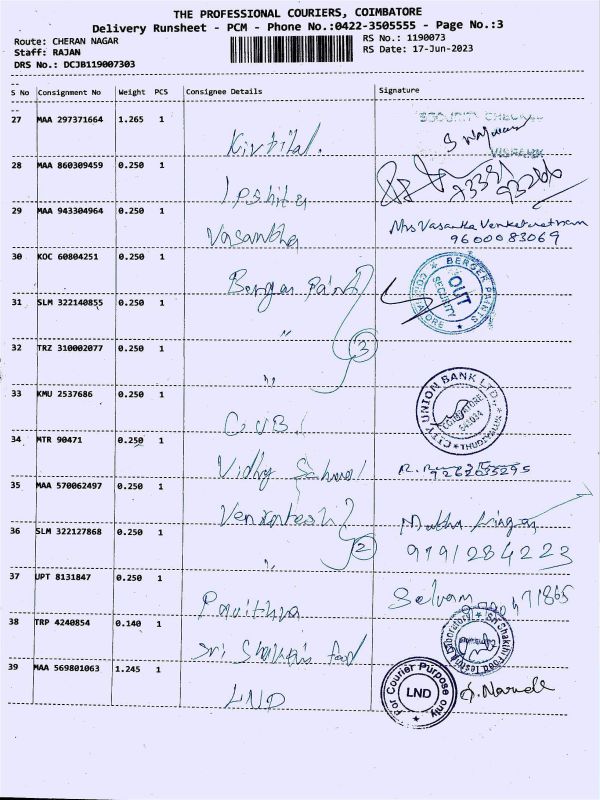 THE PROFESSIONAL COURIERS, COIMBATORE
Delivery Runsheet - PCM - Phone No.:0422-3505555 - Page No.:3
Route: CHERAN NAGAR
RS No.: 1190073
Staff: RAJAN
RS Date: 17-Jun-2023
DRS No.: DCJB119007303
S No Consignment No Weight PCS Consignee Details Signature
27 MAA 297371664 1.265 1
SECURITY CHECKED
28 MAA 860309459 0.250 1
Ipshita
29 MAA 943304964 0.250 1
Vasantha
Mrs Vasantha Venkatratnam
9600083069
30 KOC 60804251 0.250 1
Berger Paints
BERGER PAINTS
COIMBATORE
OUT
SECURITY
31 SLM 322140855 0.250 1
"
32 TRZ 310002077 0.250 1
3
"
33 KMU 2537686 0.250 1
C.U.B.
CITY UNION BANK LTD.,
COIMBATORE
641034
THUDIYALUR
34 MTR 90471 0.250 1
Vidhy School
35 MAA 570062497 0.250 1
Venkatesh
36 SLM 322127868 0.250 1
2
"
Muthu Lingam
9191284223
37 UPT 8131847 0.250 1
Pavithra
Selvam
38 TRP 4240854 0.140 1
Sri Shakthi food
Sri Shakthi Food Testing Laboratory
39 MAA 569801063 1.245 1
LND
For Courier Purpose only
LND